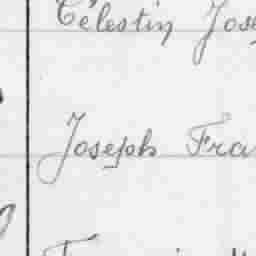 Célestin José
Joseph Fra